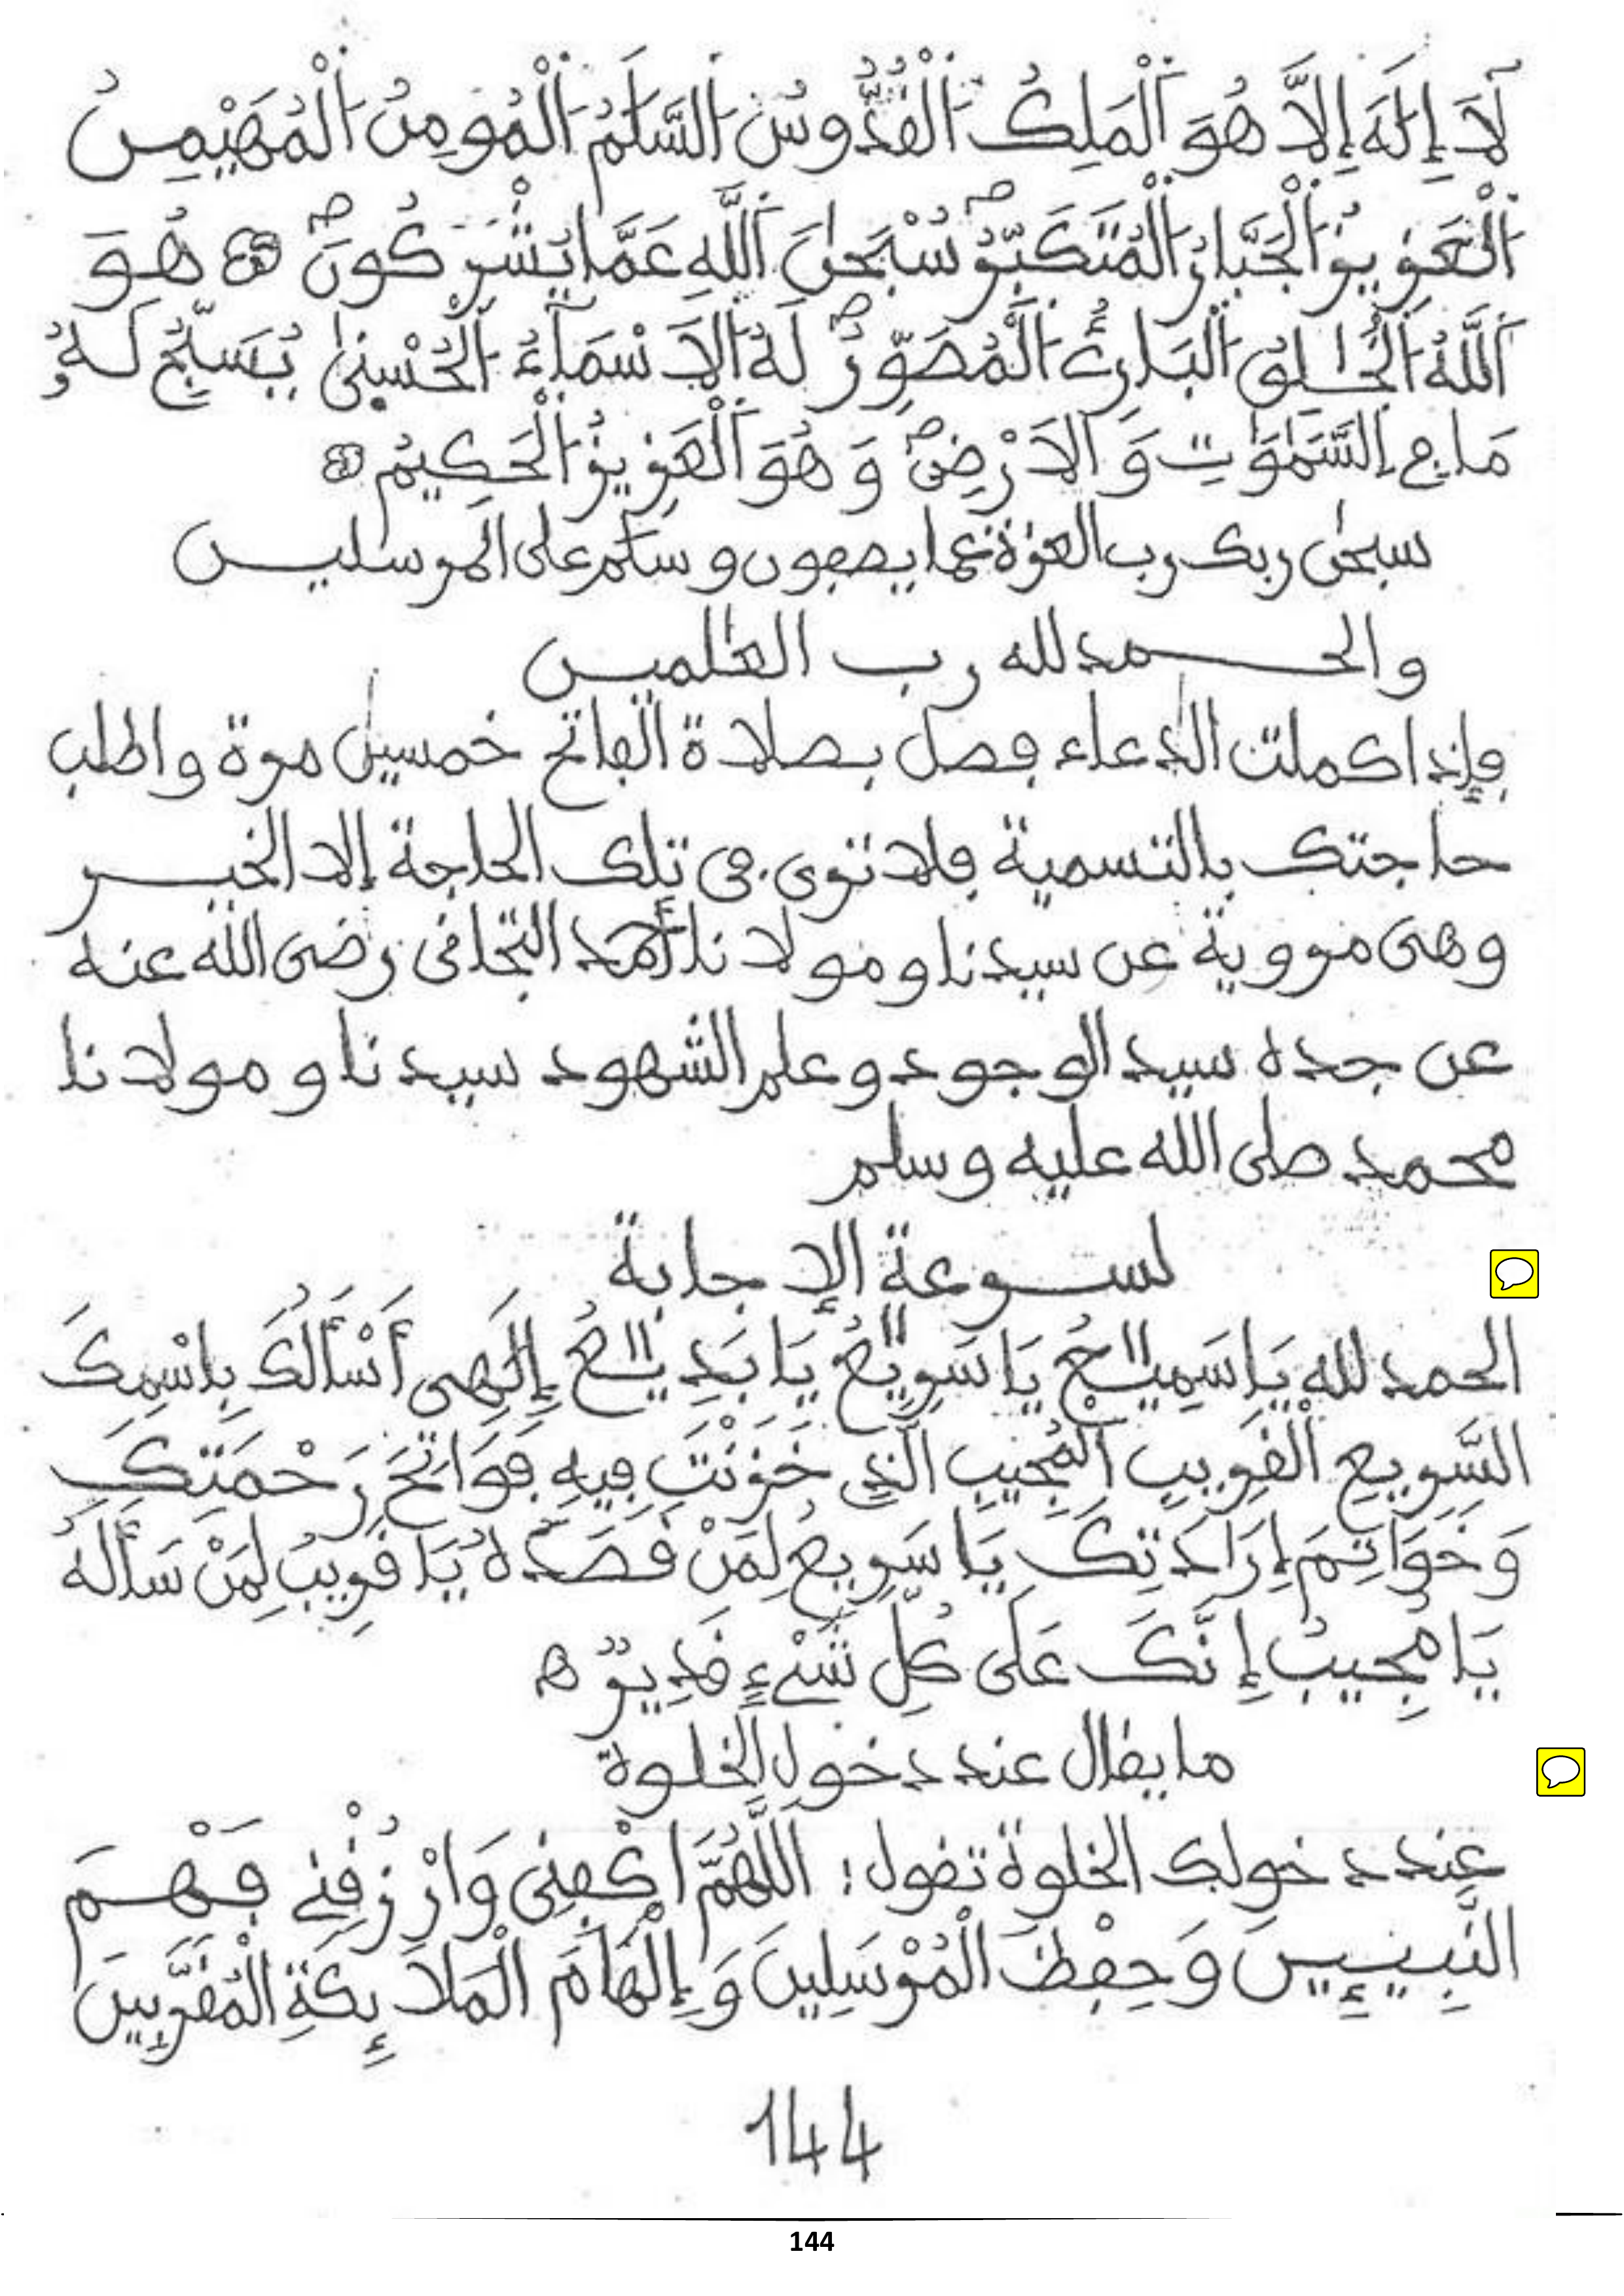 لَآ إِلَٰهَ إِلَّا هُوَ ٱلْمَلِكُ ٱلْقُدُّوسُ ٱلسَّلَٰمُ ٱلْمُومِنُ ٱلْمُهَيْمِنُ
ٱلْعَزِيزُ ٱلْجَبَّارُ ٱلْمُتَكَبِّرُ سُبْحَٰنَ ٱللَّهِ عَمَّا يُشْرِكُونَ هُوَ
ٱللَّهُ ٱلْخَٰلِقُ ٱلْبَارِئُ ٱلْمُصَوِّرُ لَهُ ٱلَاسْمَآءُ ٱلْحُسْنىٰ يُسَبِّحُ لَهُۥ
مَا فِي السَّمَٰوَٰتِ وَالَارْضِ وَهُوَ ٱلْعَزِيزُ ٱلْحَكِيمُ
سبحٰن ربك رب العزة عما يصفون وسلٰم على المرسليـن
والحـمد لله رب العٰلميـن
فإذا كملت الدعاء فصل بصلاة الفاتح خمسين مرة واطلب
حاجتك بالتسمية فلا تنوى فى تلك الحاجة إلا الخيـر
وهى مروية عن سيدنا ومولانا أحمد التجانى رضى الله عنه
عن جده سيد الوجود وعلم الشهود سيدنا ومولانا
محمد صلى الله عليه وسلم
لسـرعة الإجابة
الحمد لله يَا سَمِيعُ يَا سَرِيعُ يَا بَدِيعُ إِلَٰهِى أَسْأَلُكَ بِاسْمِكَ
السَّرِيعِ الْقَرِيبِ الْمُجِيبِ الَّذِي خَزَنْتَ فِيهِ فَوَاتِحَ رَحْمَتِكَ
وَخَوَاتِمَ إِرَادَتِكَ يَا سَرِيعُ لِمَنْ قَصَدَهُ يَا قَرِيبُ لِمَنْ سَأَلَهُ
يَا مُجِيبُ إِنَّكَ عَلَى كُلِّ شَيْءٍ قَدِيرٌ ه
ما يقال عند دخول الخلوة
عِند دخولك الخلوة تقول: اللَّهُمَّ اكْفِنِى وَارْزُقْنِي فَهْـمَ
النَّبِيئِيـنَ وَحِفْظَ الْمُرْسَلِينَ وَإِلْهَامَ الْمَلَائِكَةِ الْمُقَرَّبِينَ
144
144